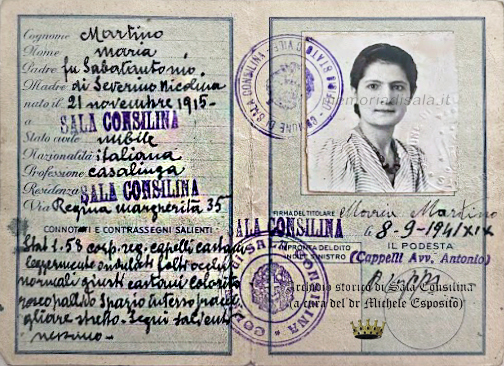 Cognome Martino
Nome Maria
Padre fu Sabatantonio
Madre di Severino Nicolina
nato il 21 novembre 1915-
a SALA CONSILINA
Stato civile nubile
Nazionalità italiana
Professione casalinga
Residenza SALA CONSILINA
Via Regina Margherita 35
CONNOTATI E CONTRASSEGNI SALIENTI
Stat. 1.58 corp. reg. capelli castani
leggermente ondulati
normali giusti castani colorito
roseo pallido
Segni salienti
nessuno -
COMUNE DI SALA CONSILINA
STATO CIVILE
memoriadisala.it
FIRMA DEL TITOLARE Maria Martino
SALA CONSILINA li 8-9-1941 XIX
IMPRONTA DEL DITO
INDICE SINISTRO
IL PODESTÀ
(Cappelli Avv. Antonio)
SALA CONSILINA
Archivio storico di Sala Consilina
(a cura del dr Michele Esposito)